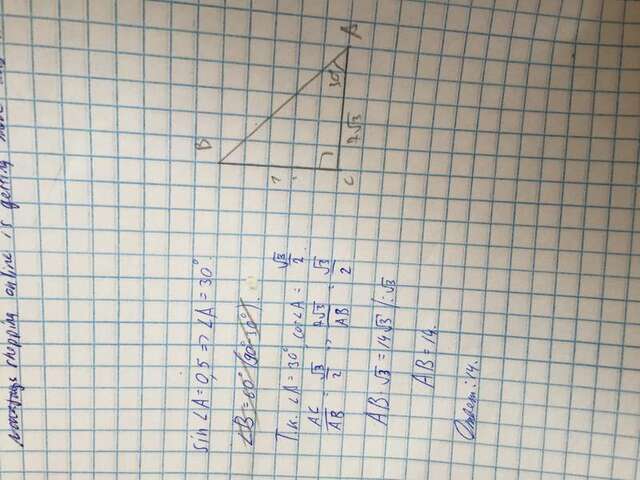 shopping online is getting more
sin ∠A = 0,5 => ∠A = 30°.
∠B = 60° (90°-30°).
Т.к. ∠A = 30°, cos∠A = √3/2.
AC/AB = √3/2 => 7√3/AB = √3/2
AB·√3 = 14√3 /:√3
AB = 14.
Ответ: 14.
B
C
7√3
30°
A